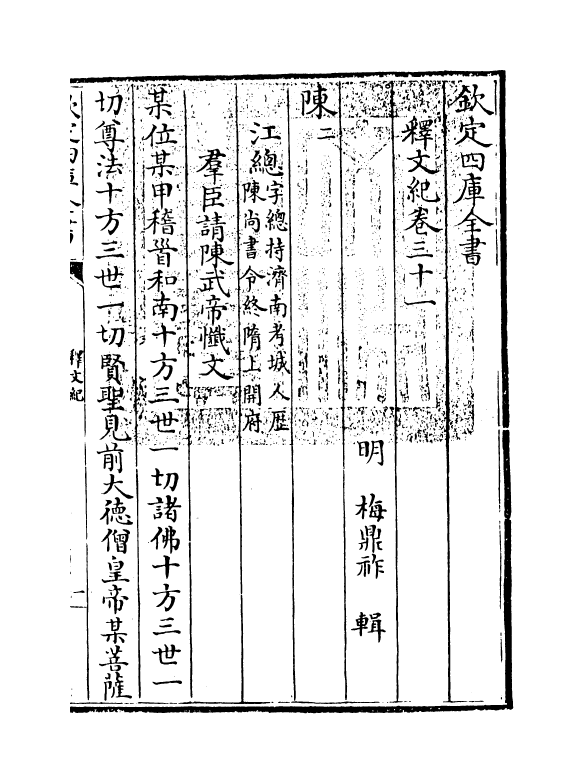 欽定四庫全書
釋文紀卷三十一
明 梅鼎祚 輯
陳二
江總字總持濟南考城人歴
陳尚書令終隋上開府
羣臣請陳武帝懺文
某位某甲稽首和南十方三世一切諸佛十方三世一
切尊法十方三世一切賢聖見前大德僧皇帝某菩薩
釋文紀